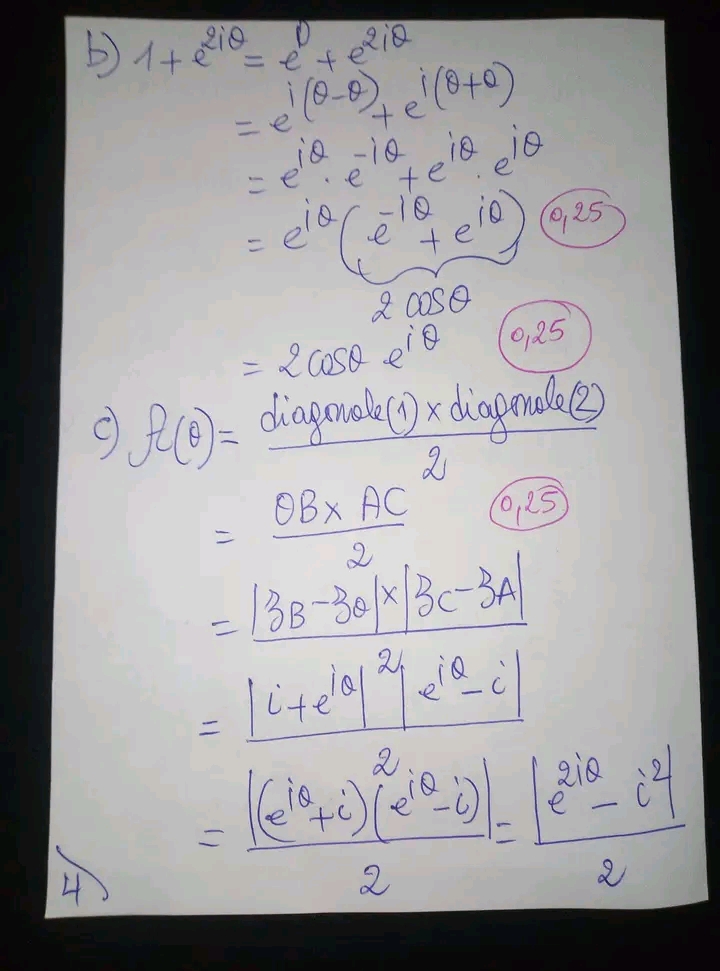 b) 1 + e^{2iθ} = e^0 + e^{2iθ}
= e^{i(θ-θ)} + e^{i(θ+θ)}
= e^{iθ} . e^{-iθ} + e^{iθ} . e^{iθ}
= e^{iθ} (e^{-iθ} + e^{iθ}) 0,25
2 cosθ
= 2 cosθ e^{iθ} 0,25
c) A(θ) = diagonale(1) x diagonale(2) / 2
= OB x AC / 2 0,25
= |z_B - z_O| x |z_C - z_A| / 2
= |i + e^{iθ}| |e^{iθ} - i| / 2
= |(e^{iθ} + i)(e^{iθ} - i)| / 2 = |e^{2iθ} - i^2| / 2
4)